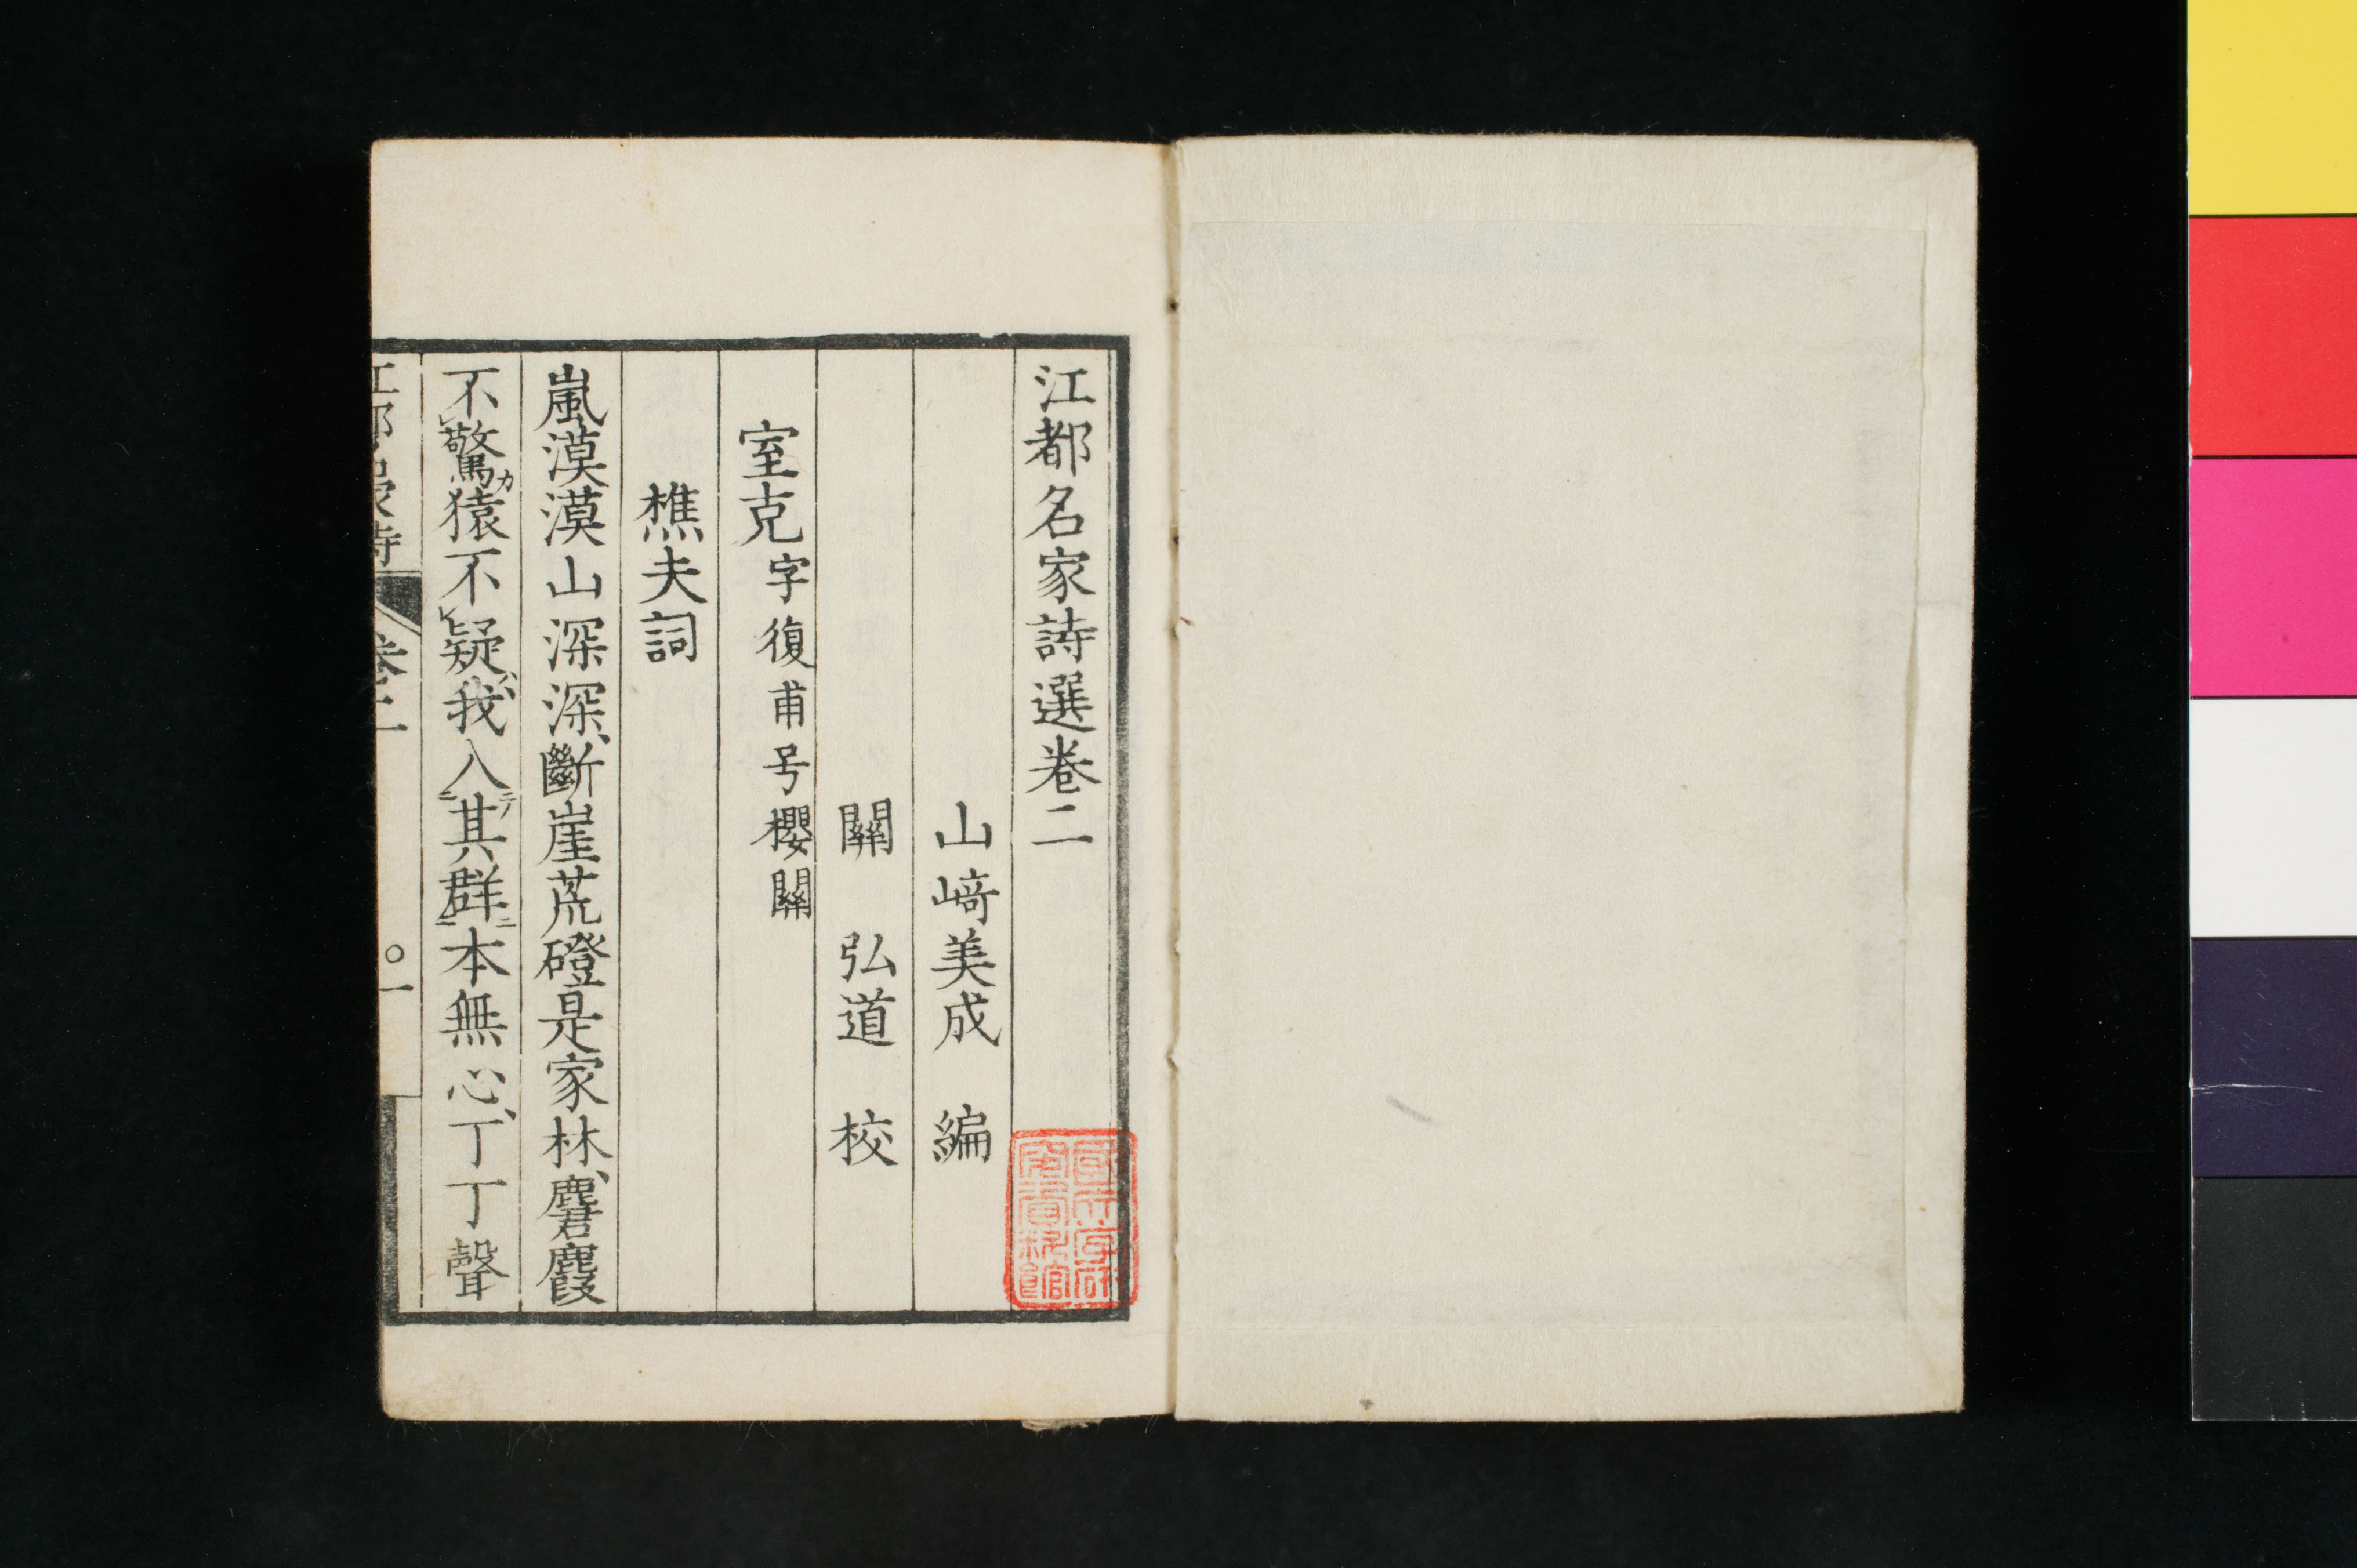 江都名家詩選卷二
山﨑美成 編
關 弘道 校
室克字復甫号櫻關
樵夫詞
嵐漠漠山深深、斷崖荒磴是家林、麏麚
不驚カ猿不疑ハ我入テ其群ニ本無心、丁丁聲
江都名家詩 卷二 〇一